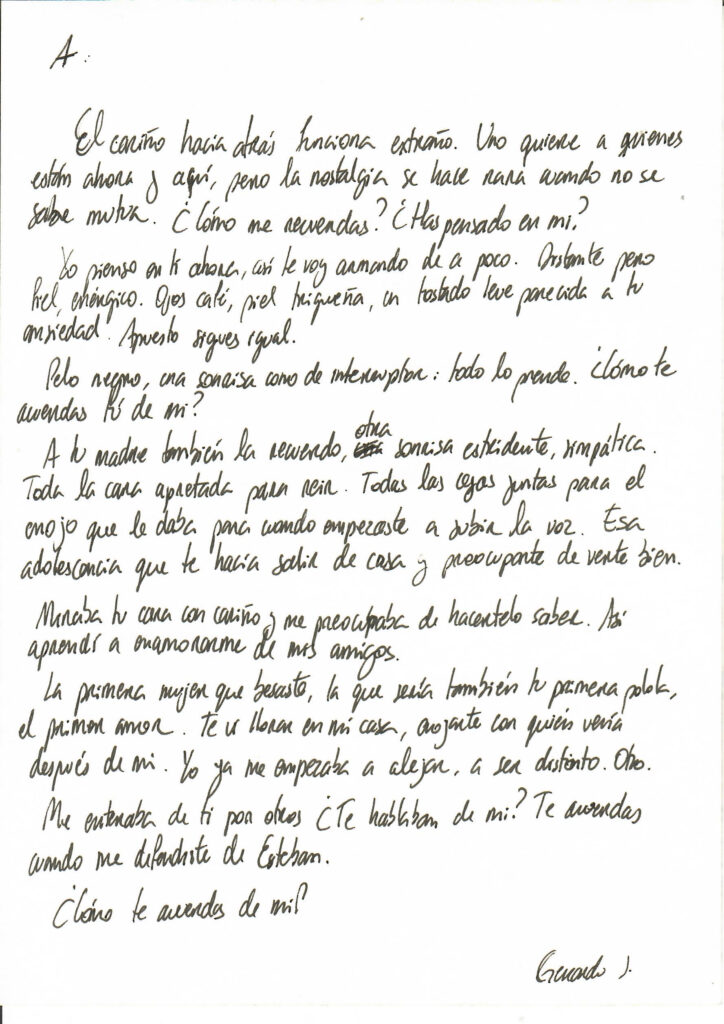 A :
El cariño hacia atrás funciona extraño. Uno quiere a quienes
están ahora y aquí, pero la nostalgia se hace rara cuando no se
sabe mutua. ¿Cómo me recuerdas? ¿Has pensado en mi?
Yo pienso en ti ahora, así te voy armando de a poco. Distante pero
fiel, enérgico. Ojos café, piel trigueña, un tostado leve parecida a tu
ansiedad. Apuesto sigues igual.
Pelo negro, una sonrisa como de interruptor: todo lo prende. ¿Cómo te
acuerdas tú de mi?
A tu madre también la recuerdo, otra sonrisa estridente, simpática.
Toda la cara apretada para reir. Todas las cejas juntas para el
enojo que le daba para cuando empezaste a subir la voz. Esa
adolescencia que te hacía salir de casa y preocuparte de verte bien.
Miraba tu cara con cariño y me preocupaba de hacertelo saber. Así
aprendí a enamorarme de mis amigos.
La primera mujer que besaste, la que sería también tu primera polola,
el primer amor. Te vi llorar en mi casa, enojarte con quién vería
después de mi. Yo ya me empezaba a alejar, a ser distinto. Otro.
Me enteraba de ti por otros ¿Te hablaban de mi? Te acuerdas
cuando me defendiste de Esteban.
¿Cómo te acuerdas de mi?
Gerardo J.